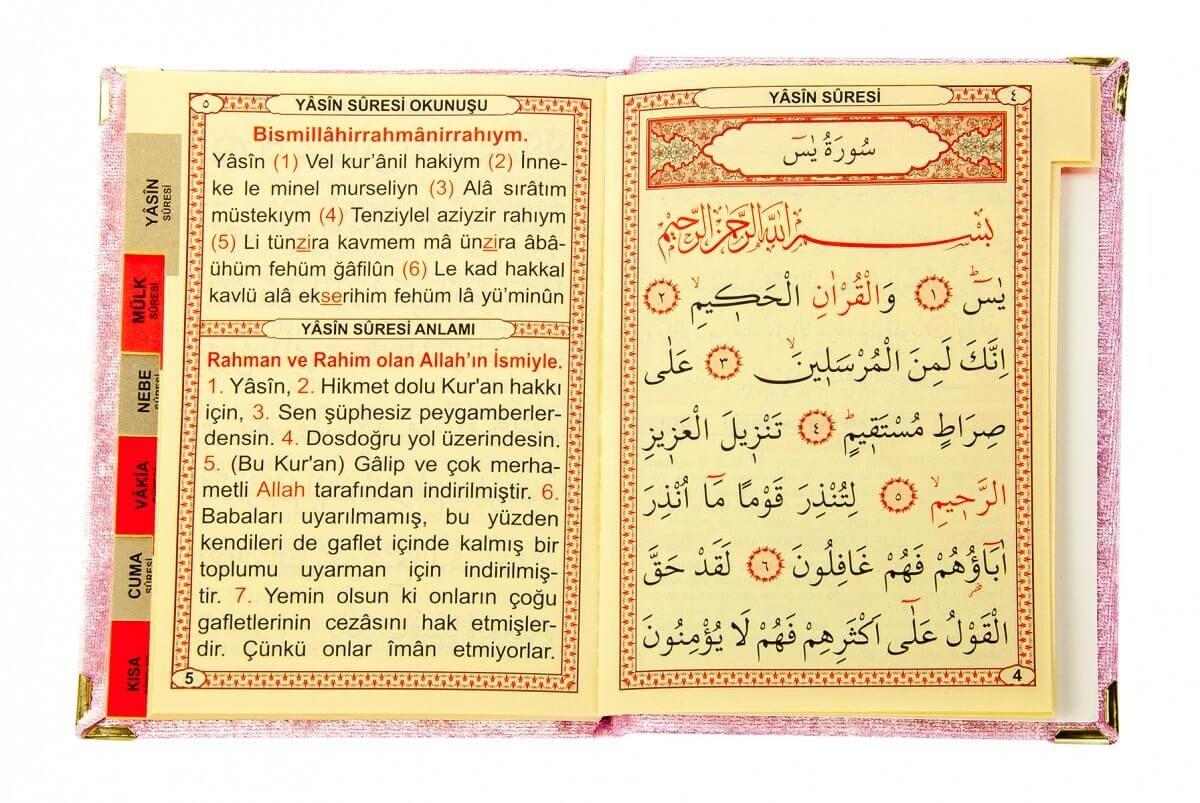 ٤
YÂSİN SÛRESİ
سُورَةُ يٰسٓ
بِسْمِ اللّٰهِ الرَّحْمٰنِ الرَّحٖيمِ
يٰسٓ ۚ ﴿١﴾ وَالْقُرْاٰنِ الْحَكٖيمِ ۙ ﴿٢﴾
اِنَّكَ لَمِنَ الْمُرْسَلٖينَ ۙ ﴿٣﴾ عَلٰى
صِرَاطٍ مُسْتَقٖيمٍ ؕ ﴿٤﴾ تَنْزٖيلَ الْعَزٖيزِ
الرَّحٖيمِ ۙ ﴿٥﴾ لِتُنْذِرَ قَوْمًا مَٓا اُنْذِرَ
اٰبَٓاؤُ۬هُمْ فَهُمْ غَافِلُونَ ﴿٦﴾ لَقَدْ حَقَّ
الْقَوْلُ عَلٰٓى اَكْثَرِهِمْ فَهُمْ لَا يُؤْمِنُونَ
4
٥
YÂSİN SÛRESİ OKUNUŞU
Bismillâhirrahmânirrahıym.
Yâsîn (1) Vel kur’ânil hakiym (2) İnne-
ke le minel murseliyn (3) Alâ sırâtım
müstekıym (4) Tenziylel aziyzir rahıym
(5) Li tünzira kavmem mâ ünzira âbâ-
ühüm fehüm ğâfilûn (6) Le kad hakkal
kavlü alâ ekserihim fehüm lâ yü’minûn
YÂSÎN SÛRESİ ANLAMI
Rahman ve Rahim olan Allah’ın İsmiyle.
1. Yâsîn, 2. Hikmet dolu Kur'an hakkı
için, 3. Sen şüphesiz peygamberler-
densin. 4. Dosdoğru yol üzerindesin.
5. (Bu Kur'an) Gâlip ve çok merha-
metli Allah tarafından indirilmiştir. 6.
Babaları uyarılmamış, bu yüzden
kendileri de gaflet içinde kalmış bir
toplumu uyarman için indirilmiş-
tir. 7. Yemin olsun ki onların çoğu
gafletlerinin cezâsını hak etmişler-
dir. Çünkü onlar îmân etmiyorlar.
5
YÂSÎN
SÛRESİ
MÜLK
SÛRESİ
NEBE
SÛRESİ
VÂKIA
CUMA
SÛRESİ
KISA